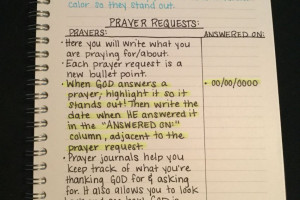 color so they stand out.
PRAYER REQUESTS:
PRAYERS:
ANSWERED ON:
• Here you will write what
you are praying for/about.
• Each prayer request is a
new bullet point.
• When GOD answers a
prayer, highlight it so it
stands out! Then write the
date when HE answered it
in the "ANSWERED ON:"
column, adjacent to the
prayer request.
• 00/00/0000
• Prayer journals help you
keep track of what you're
thanking GOD for & asking
for. It also allows you to look